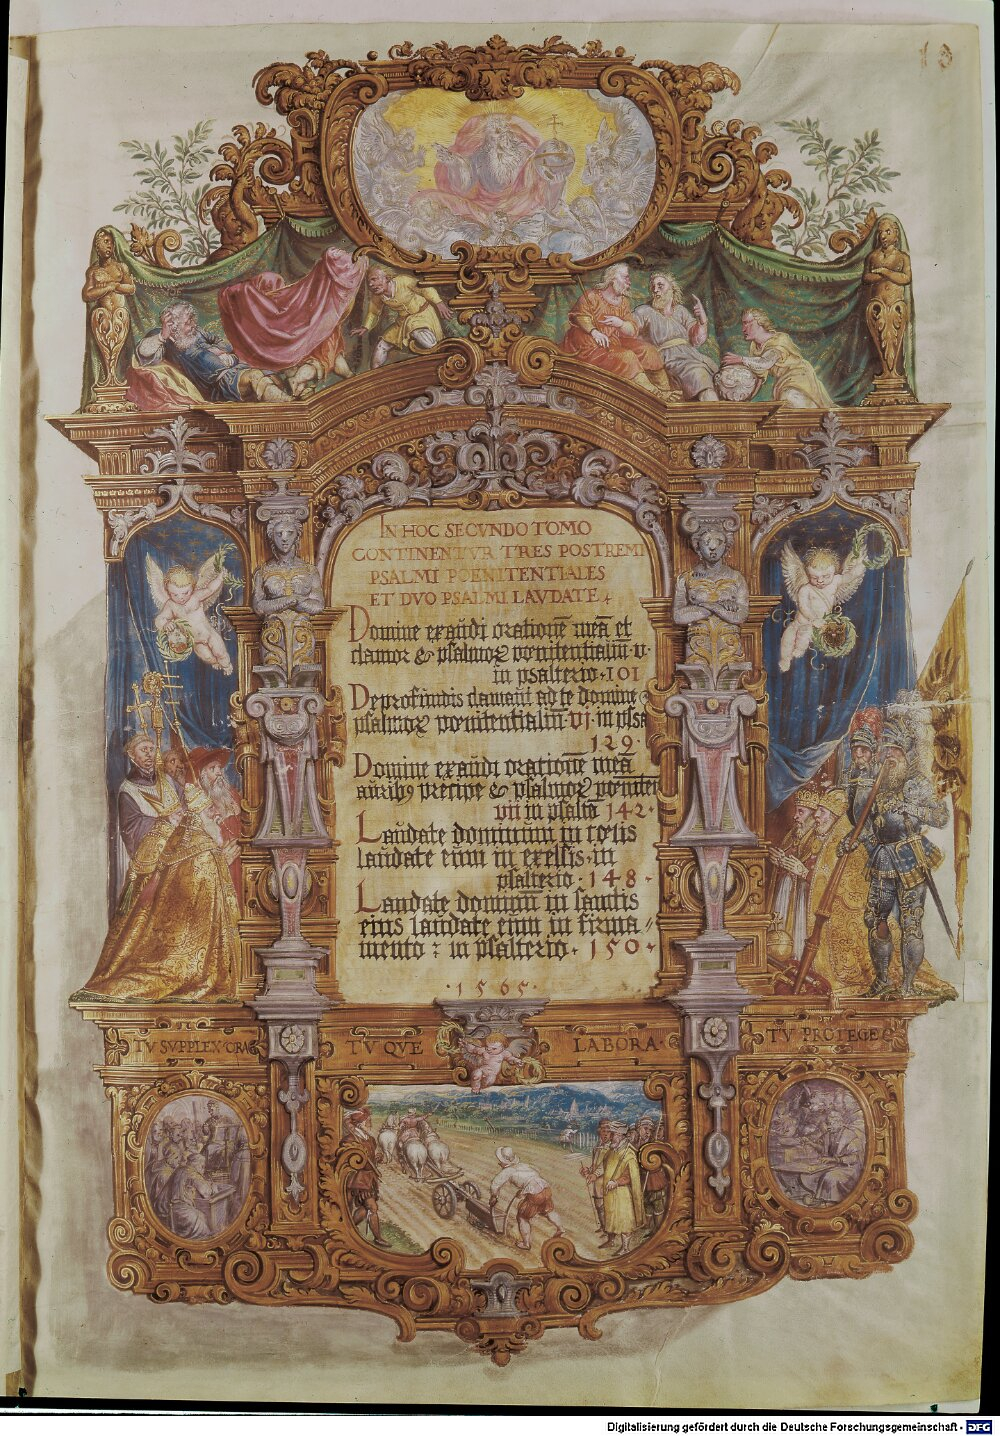 13
IN HOC SECVNDO TOMO
CONTINENTVR TRES POSTREMI
PSALMI POENITENTIALES
ET DVO PSALMI LAVDATE.
Domine exaudi orationē meā et
clamor & psalmoꝝ penitentialiū v.
in psalterio . 101
De profundis clamavi ad te domine
psalmoꝝ penitentialiū vi. in psal
129 .
Domine exaudi orationē meā
auribꝰ percipe & psalmoꝝ peniten
vii in psaltō 142.
Laudate dominum in cœlis
laudate eum in exelsis. in
psalterio . 148 .
Laudate dominū in sanctis
eius laudate eum in firma=
mento : in psalterio . 150.
. 1565 .
TV SVPPLEX ORA TV QVE LABORA . TV PROTEGE
Digitalisierung gefördert durch die Deutsche Forschungsgemeinschaft - DFG